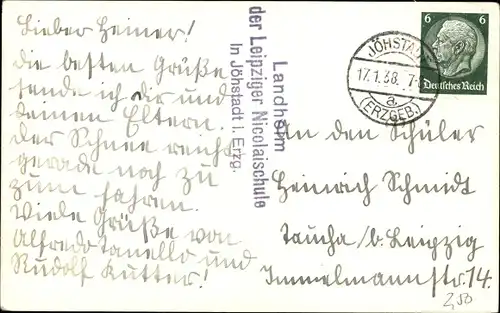 Lieber Heiner!
die besten Grüße
sende ich dir und
deinen Eltern.
der Schnee reicht
gerade noch zu
zum fahren.
Viele Grüße von
Alfredo Tanello und
Rudolf Kutter!
Landheim
der Leipziger Nicolaischule
in Jöhstadt i. Erzg.
JÖHSTADT
17.1.38. 7-
a
(ERZGEB.)
6 6
Deutsches Reich
An den Schüler
Heinrich Schmidt
Taucha /b. Leipzig
Immelmannstr. 14.
2,50